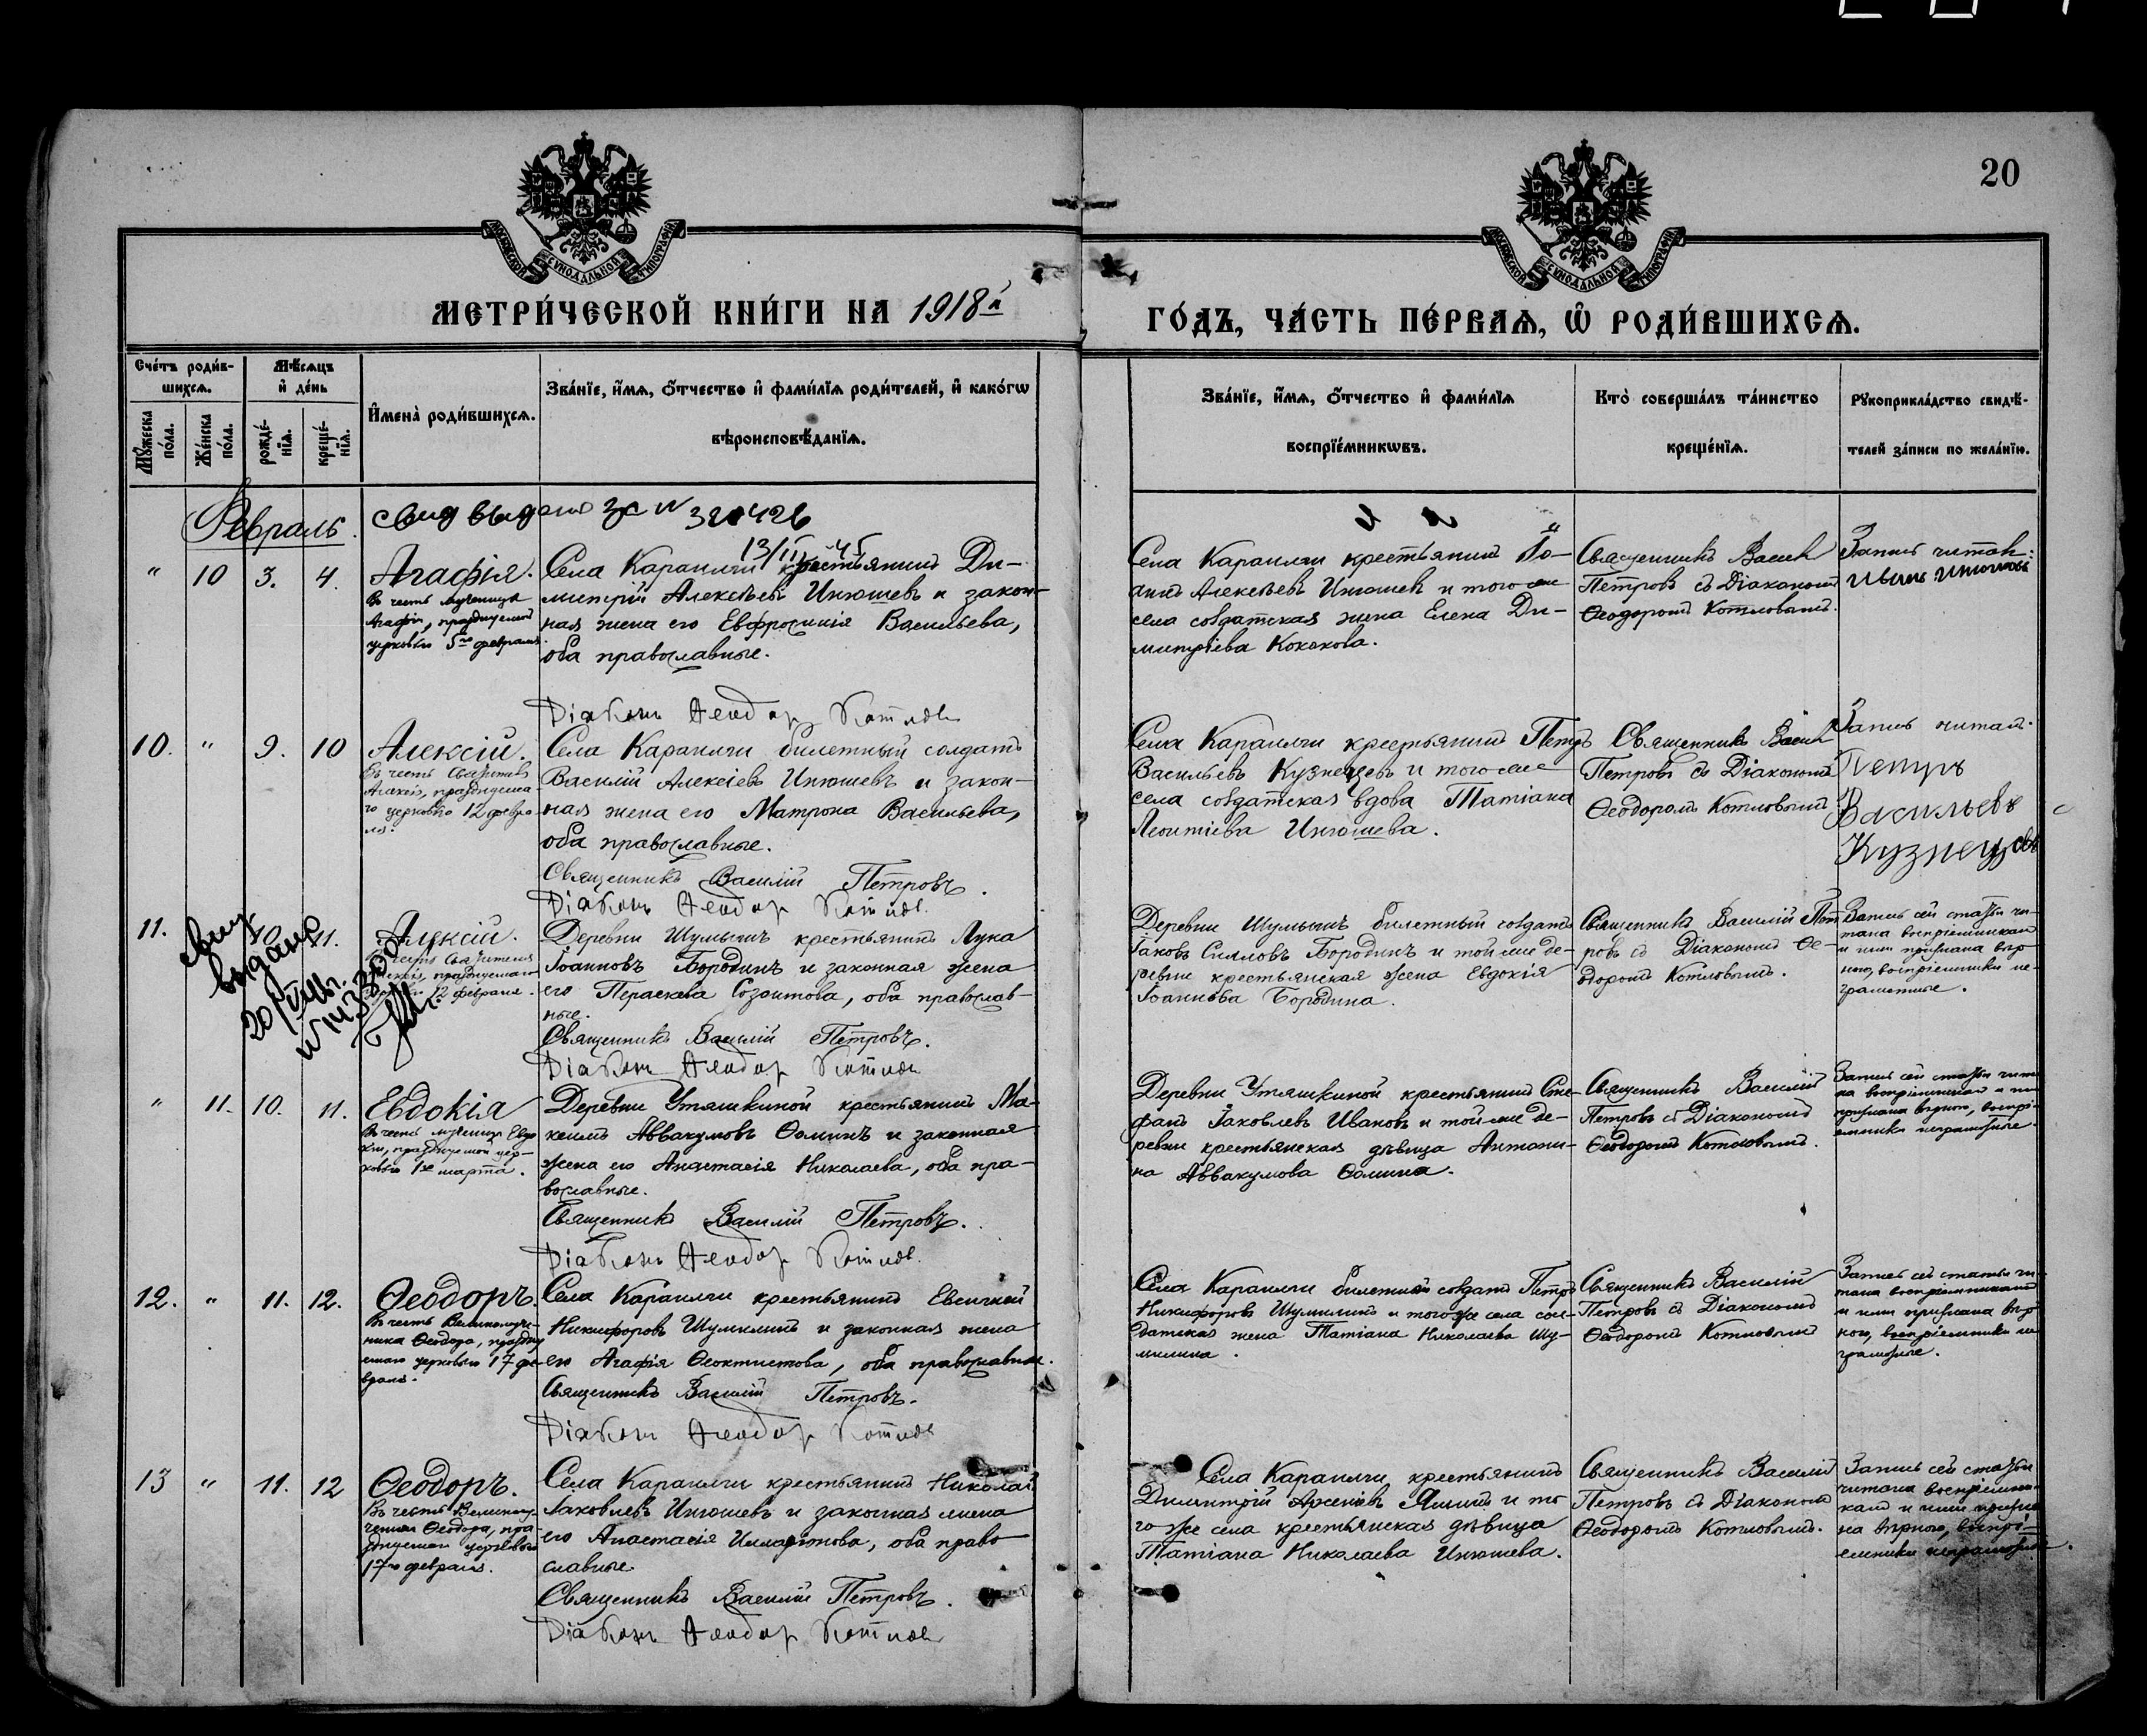 20
МОСКОВСКОЙ СѴНОДАЛЬНОЙ ТИПОГРАФІИ
МОСКОВСКОЙ СѴНОДАЛЬНОЙ ТИПОГРАФІИ
МЕТРИ́ЧЕСКОЙ КНИ́ГИ НА 1918й
ГО́ДЪ, ЧА́СТЬ ПЕ́РВАѦ, Ѽ РОДИ́ВШИХСѦ.
Сче́тъ роди́в-
шихсѧ.
Мѣ́сѧцъ
и҆ де́нь
Мꙋ́жеска
по́ла.
Же́нска
по́ла.
рожде́-
нїѧ.
креще́-
нїѧ.
И҆мена̀ роди́вшихсѧ.
Зва́нїе, и҆́мѧ, ѻ҆́тчество и҆ фами́лїѧ роди́телей, и҆ како́гѡ
вѣроисповѣ́данїѧ.
Зва́нїе, и҆́мѧ, ѻ҆́тчество и҆ фами́лїѧ
воспрїе́мникѡвъ.
Кто̀ соверша́лъ та́инство
креще́нїѧ.
Рꙋкоприкла́дство свидѣ́-
телей за́писи по жела́нїю.
Февраль.
свид выдано за №
13/II 45
" 10 3. 4.
Агафія.
Въ честь мученицы
Агафіи, празднуемой
церковью 5го февраля.
Села Караилги крестьянинъ Ди-
митрій Алексѣевъ Инюшевъ и закон-
ная жена его Евфросинія Васильева,
оба православные.
Діаконъ Ѳеодоръ Котловъ
Села Караилги крестьянинъ Іо-
аннъ Алексѣевъ Инюшевъ и того же
села солдатская жена Елена Ди-
митріева Кококова.
Священникъ Васил
Петровъ съ Діакономъ
Ѳеодоромъ Котловымъ.
Запись читалъ:
Иванъ Инюшовъ
10. " 9. 10
Алексій.
Въ честь Святителя
Алексія, празднуема-
го церковью 12 февра-
ля.
Села Караилги билетный солдатъ
Василій Алексіевъ Инюшевъ и закон-
ная жена его Матрона Васильева,
оба православные.
Священникъ Василій Петровъ.
Діаконъ Ѳеодоръ Котловъ.
Села Караилги крестьянинъ Петръ
Васильевъ Кузнецевъ и того же
села солдатская вдова Татіана
Леонтіева Инюшева.
Священникъ Васил
Петровъ съ Діакономъ
Ѳеодоромъ Котловымъ.
Запись читалъ.
Петръ
Васильевъ
Кузнецовъ
11. 10 11.
свид
выдано
Алексій.
Въ честь Святителя
Алексія, празднуемаго
церковью 12 февраля.
Деревни Шумышъ крестьянинъ Лука
Іоанновъ Бородинъ и законная жена
его Параскева Созонтова, оба православ-
ные.
Священникъ Василій Петровъ.
Діаконъ Ѳеодоръ Котловъ
Деревни Шумышъ билетный солдатъ
Іаковъ Силловъ Бородинъ и той же де-
ревни крестьянская жена Евдокія
Іоаннова Бородина.
Священникъ Василій Пет-
ровъ съ Діакономъ Ѳе-
одоромъ Котловымъ.
Запись сей статьи чи-
тана воспріемникам
и ими признана вѣр-
ною, воспріемники не-
грамотные.
" 11. 10. 11.
Евдокія
Въ честь мученицы Евдо-
кіи, празднуемой цер-
ковью 1го марта.
Деревни Утяшкиной крестьянинъ Ма-
ксимъ Аввакумовъ Ѳоминъ и законная
жена его Анастасія Николаева, оба пра-
вославные.
Священникъ Василій Петровъ.
Діаконъ Ѳеодоръ Котловъ.
Деревни Утяшкиной крестьянинъ Сте-
фанъ Іаковлевъ Ивановъ и той же де-
ревни крестьянская дѣвица Антони-
на Аввакумова Ѳомина.
Священникъ Василій
Петровъ съ Діакономъ
Ѳеодоромъ Котловымъ.
Запись сей статьи чита-
на воспріемникам и ими
признана вѣрною, воспрі-
емники неграмотные.
12. " 11. 12.
Ѳеодоръ.
Въ честь Великомуче-
ника Ѳеодора, праздну-
емаго церковью 17 фе-
враля.
Села Караилги крестьянинъ Евсигней
Никифоровъ Шумилинъ и законная жена
его Агафія Ѳеоктистова, оба православные.
Священникъ Василій Петровъ.
Діаконъ Ѳеодоръ Котловъ
Села Караилги билетный солдатъ Петръ
Никифоровъ Шумилинъ и того же села сол-
датская жена Татіана Николаева Шу-
милина.
Священникъ Василій
Петровъ съ Діакономъ
Ѳеодоромъ Котловымъ
Запись сей статьи чи-
тана воспріемникам
и ими признана вѣр-
ною, воспріемники не-
грамотные.
13 " 11. 12
Ѳеодоръ.
Въ честь Великому-
ченика Ѳеодора, пра-
зднуемаго церковью
17го февраля.
Села Караилги крестьянинъ Николай
Іаковлевъ Инюшевъ и законная жена
его Анастасія Илларіонова, оба право-
славные.
Священникъ Василій Петровъ.
Діаконъ Ѳеодоръ Котловъ
Села Караилги, крестьянинъ
Димитрій Арсеніевъ Яшинъ и то-
го же села крестьянская дѣвица
Татіана Николаева Инюшева.
Священникъ Василій
Петровъ съ Діакономъ
Ѳеодоромъ Котловымъ.
Запись сей статьи
читана воспріемни-
кам и ими призна-
на вѣрною, воспрі-
емники неграмотные.